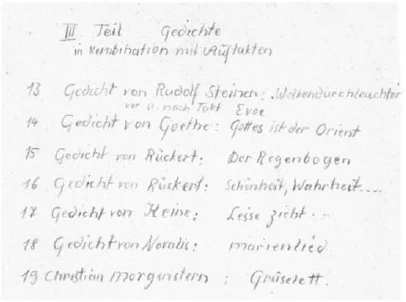 III Teil Gedichte
in Kombination mit Auftakten
13 Gedicht von Rudolf Steiner: Wolkendurchleuchter
vor u. nach Takt Evoe
14 Gedicht von Goethe: Gottes ist der Orient
15 Gedicht von Rückert: Der Regenbogen
16 Gedicht von Rückert: Schönheit, Wahrheit....
17 Gedicht von Heine: Leise zieht...
18 Gedicht von Novalis: Marienlied
19 Christian Morgenstern: Grüselett.